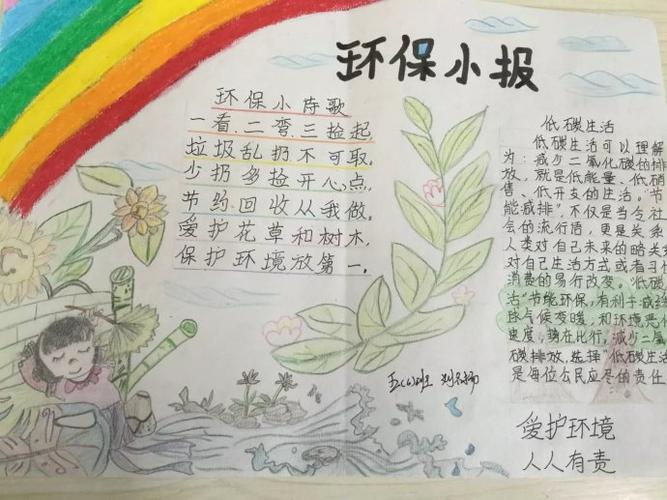 环保小报
环保小诗歌
一看、二弯、三捡起
垃圾乱扔不可取。
少扔多捡开心点,
节约回收从我做。
爱护花草和树木,
保护环境放第一。
低碳生活
低碳生活可以理解
为:减少二氧化碳的排
放,就是低能量、低销
售、低开支的生活。"节
能减排",不仅是当今社
会的流行语,更是关系
人类对自己未来的略关
对自己生活方式或者
消费的易行改变。"低碳
活"节能环保,有利于减
球气候变暖,和环境恶
速度,势在比行,减少二
碳排放,选择"低碳生活
是每位公民应尽的责任
五(6)班
爱护环境
人人有责